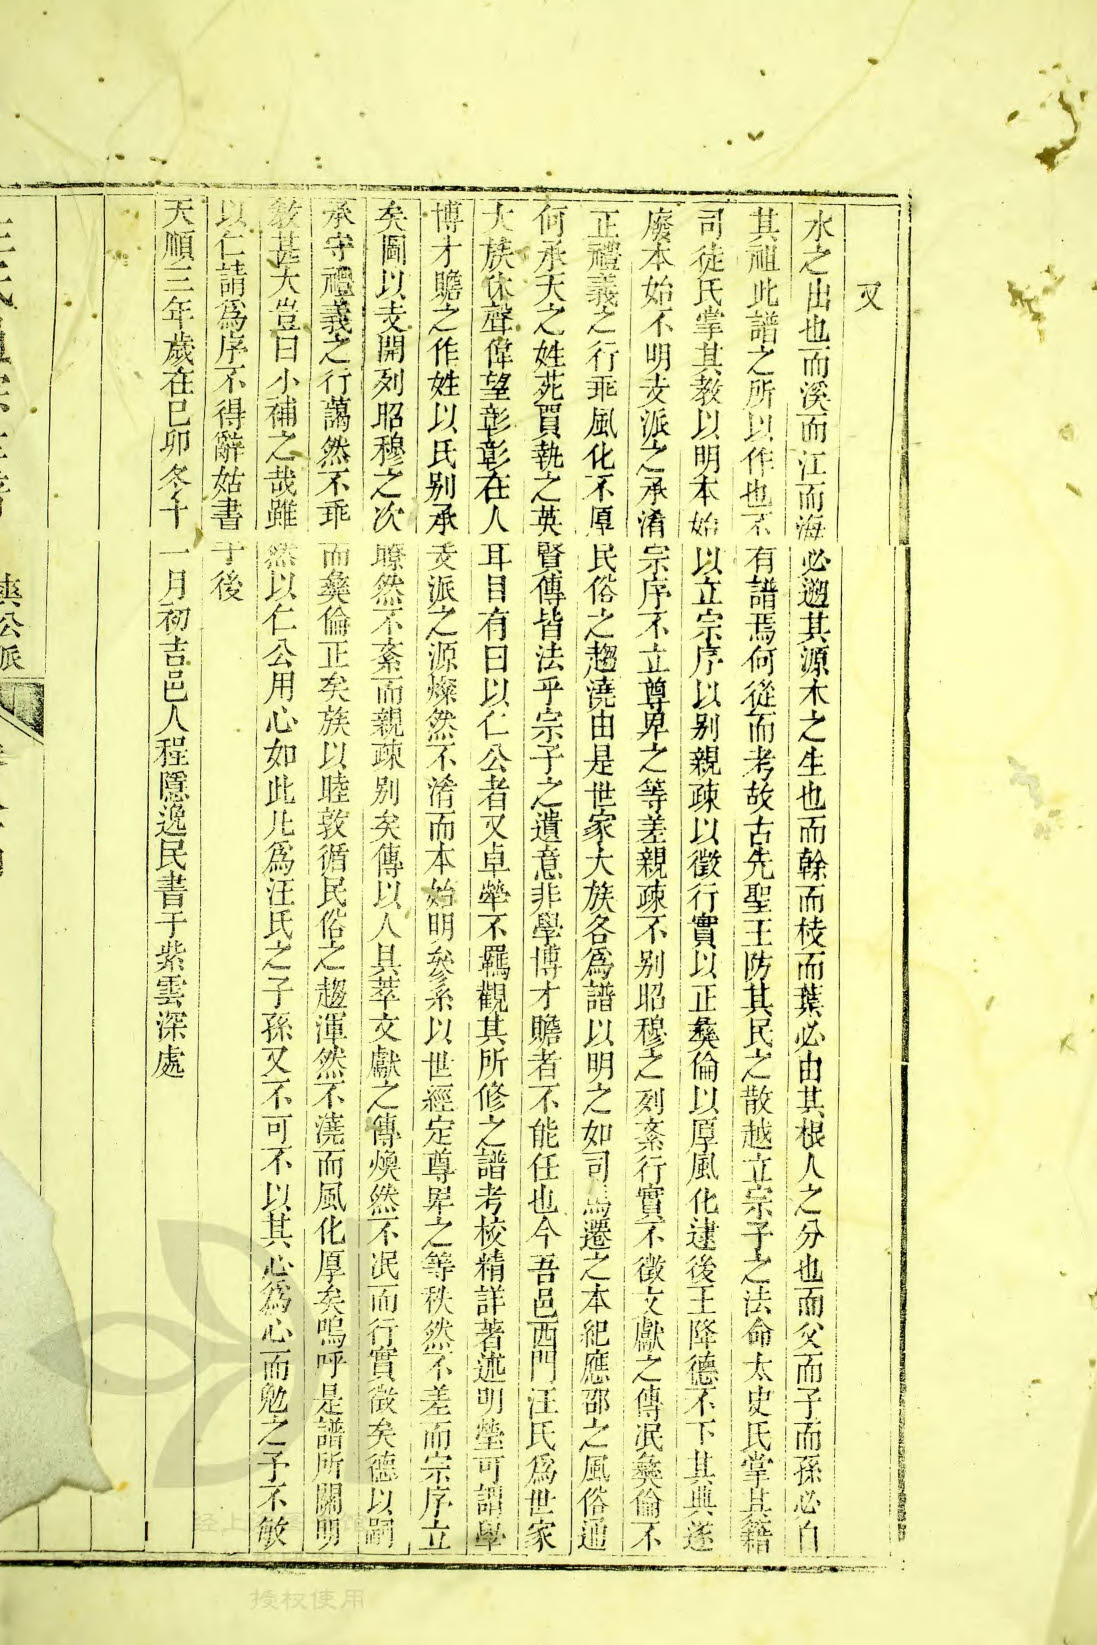 又
水之出也而溪而江而海必遡其源木之生也而榦而枝而葉必由其根人之分也而父而子而孫必自
其祖此譜之所以作也不有譜焉何從而考故古先聖王防其民之散越立宗子之法命太史氏掌其籍
司徒氏掌其教以明本始以立宗序以别親疎以徵行實以正彝倫以厚風化逮後王降德不下其典遂
廢本始不明支派之承淆宗序不立尊卑之等差親疎不别昭穆之列紊行實不徵文獻之傳泯彝倫不
正禮義之行乖風化不厚民俗之趨澆由是世家大族各爲譜以明之如司馬遷之本紀應邵之風俗通
何承天之姓苑賈執之英賢傳皆法乎宗子之遺意非學博才贍者不能任也今吾邑西門汪氏爲世家
大族休聲偉望彰彰在人耳目有曰以仁公者又卓犖不羈觀其所修之譜考校精詳著述明瑩可謂學
博才贍之作姓以氏别承支派之源燦然不淆而本始明矣系以世經定尊卑之等秩然不差而宗序立
矣圖以支開列昭穆之次瞭然不紊而親疎别矣傳以人具萃文獻之傳煥然不泯而行實徵矣德以嗣
承守禮義之行藹然不乖而彝倫正矣族以睦敦循民俗之趨渾然不澆而風化厚矣嗚呼是譜所關明
教甚大豈曰小補之哉雖然以仁公用心如此凡爲汪氏之子孫又不可不以其心為心而勉之予不敏
以仁請爲序不得辭姑書于後
天順三年歲在已卯冬十一月初吉邑人程隱逸民書于紫雲深處
爽公派
授权使用